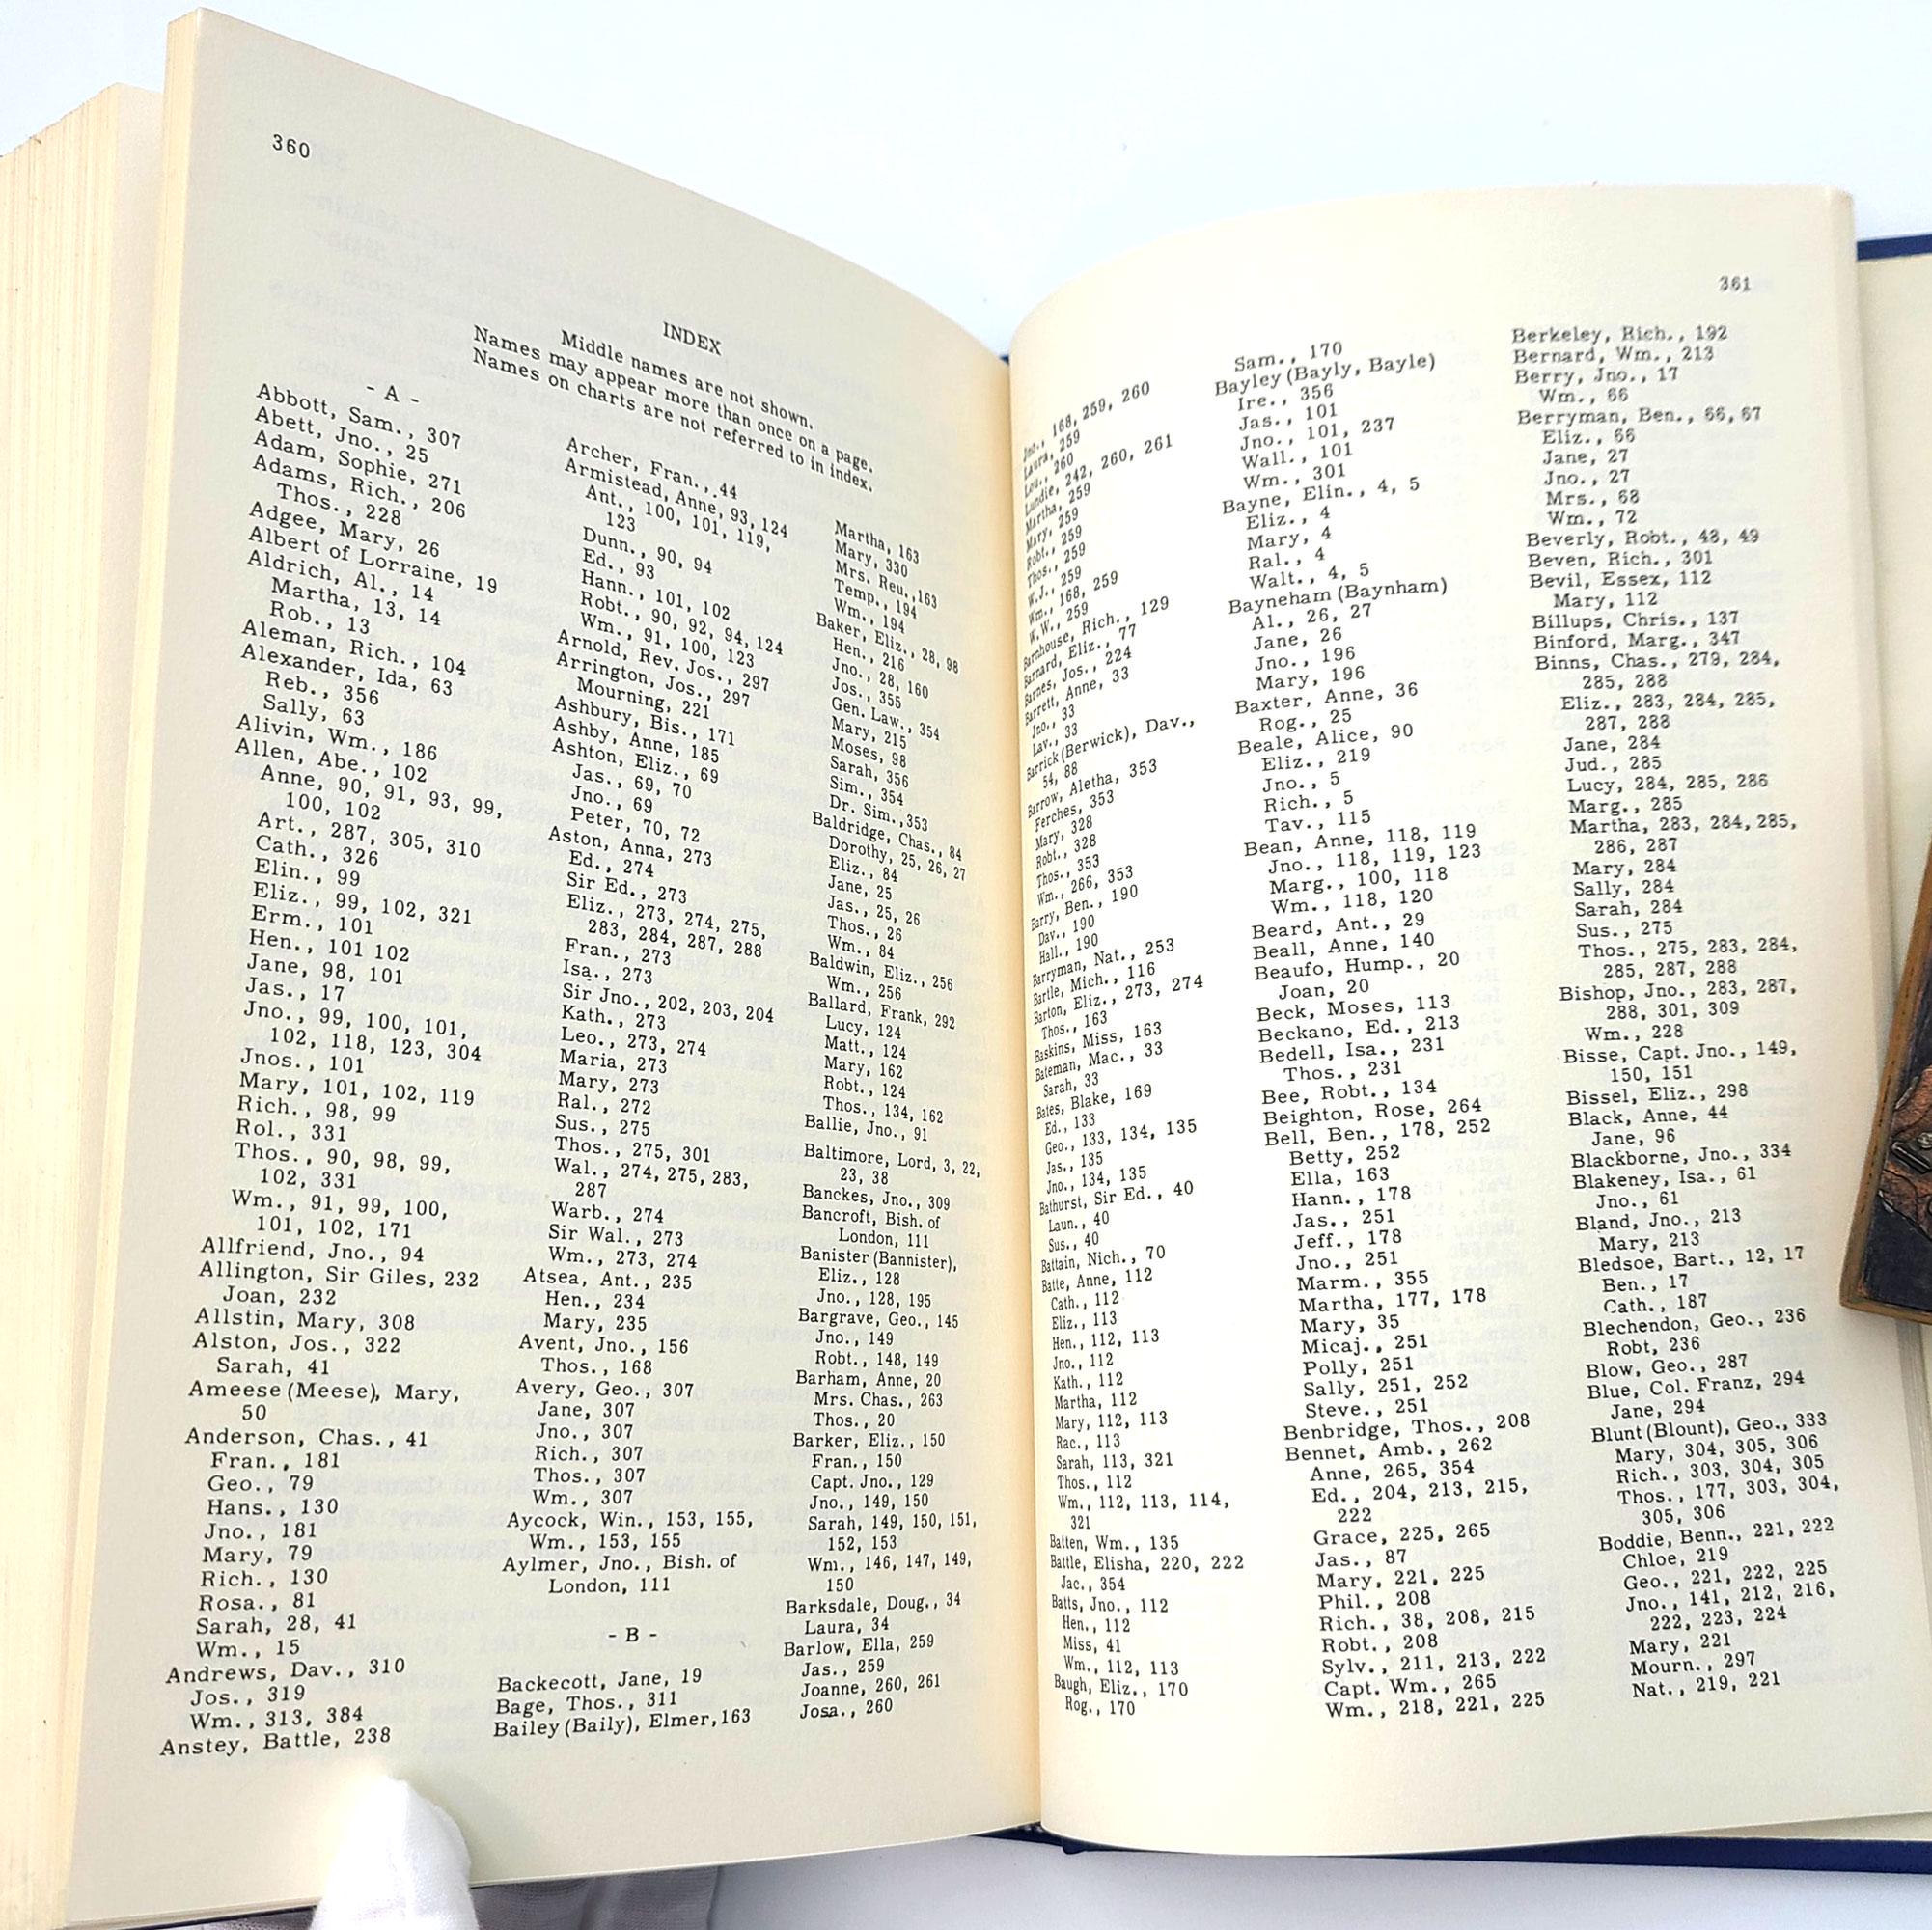 360
INDEX
Middle names are not shown.
Names may appear more than once on a page.
Names on charts are not referred to in index.
- A -
Abbott, Sam., 307
Abett, Jno., 25
Adam, Sophie, 271
Adams, Rich., 206
Thos., 228
Adgee, Mary, 26
Albert of Lorraine, 19
Aldrich, Al., 14
Martha, 13, 14
Rob., 13
Aleman, Rich., 104
Alexander, Ida, 63
Reb., 356
Sally, 63
Alivin, Wm., 186
Allen, Abe., 102
Anne, 90, 91, 93, 99,
100, 102
Art., 287, 305, 310
Cath., 326
Elin., 99
Eliz., 99, 102, 321
Erm., 101
Hen., 101 102
Jane, 98, 101
Jas., 17
Jno., 99, 100, 101,
102, 118, 123, 304
Jnos., 101
Mary, 101, 102, 119
Rich., 98, 99
Rol., 331
Thos., 90, 98, 99,
102, 331
Wm., 91, 99, 100,
101, 102, 171
Allfriend, Jno., 94
Allington, Sir Giles, 232
Joan, 232
Allstin, Mary, 308
Alston, Jos., 322
Sarah, 41
Ameese (Meese), Mary,
50
Anderson, Chas., 41
Fran., 181
Geo., 79
Hans., 130
Jno., 181
Mary, 79
Rich., 130
Rosa., 81
Sarah, 28, 41
Wm., 15
Andrews, Dav., 310
Jos., 319
Wm., 313, 384
Anstey, Battle, 238
Archer, Fran., .44
Armistead, Anne, 93, 124
Ant., 100, 101, 119,
123
Dunn., 90, 94
Ed., 93
Hann., 101, 102
Robt., 90, 92, 94, 124
Wm., 91, 100, 123
Arnold, Rev. Jos., 297
Arrington, Jos., 297
Mourning, 221
Ashbury, Bis., 171
Ashby, Anne, 185
Ashton, Eliz., 69
Jas., 69, 70
Jno., 69
Peter, 70, 72
Aston, Anna, 273
Ed., 274
Sir Ed., 273
Eliz., 273, 274, 275,
283, 284, 287, 288
Fran., 273
Isa., 273
Sir Jno., 202, 203, 204
Kath., 273
Leo., 273, 274
Maria, 273
Mary, 273
Ral., 272
Sus., 275
Thos., 275, 301
Wal., 274, 275, 283,
287
Warb., 274
Sir Wal., 273
Wm., 273, 274
Atsea, Ant., 235
Hen., 234
Mary, 235
Avent, Jno., 156
Thos., 168
Avery, Geo., 307
Jane, 307
Jno., 307
Rich., 307
Thos., 307
Wm., 307
Aycock, Win., 153, 155,
Wm., 153, 155
Aylmer, Jno., Bish. of
London, 111
- B -
Backecott, Jane, 19
Bage, Thos., 311
Bailey (Baily), Elmer, 163
Martha, 163
Mary, 330
Mrs. Reu., 163
Temp., 194
Wm., 194
Baker, Eliz., 28, 98
Hen., 216
Jno., 28, 160
Jos., 355
Gen. Law., 354
Mary, 215
Moses, 98
Sarah, 356
Sim., 354
Dr. Sim., 353
Baldridge, Chas., 84
Dorothy, 25, 26, 27
Eliz., 84
Jane, 25
Jas., 25, 26
Thos., 26
Wm., 84
Baldwin, Eliz., 256
Wm., 256
Ballard, Frank, 292
Lucy, 124
Matt., 124
Mary, 162
Robt., 124
Thos., 134, 162
Ballie, Jno., 91
Baltimore, Lord, 3, 22,
23, 38
Banckes, Jno., 309
Bancroft, Bish. of
London, 111
Banister (Bannister),
Eliz., 128
Jno., 128, 195
Bargrave, Geo., 145
Jno., 149
Robt., 148, 149
Barham, Anne, 20
Mrs. Chas., 263
Thos., 20
Barker, Eliz., 150
Fran., 150
Capt. Jno., 129
Jno., 149, 150
Sarah, 149, 150, 151,
152, 153
Wm., 146, 147, 149,
150
Barksdale, Doug., 34
Laura, 34
Barlow, Ella, 259
Jas., 259
Joanne, 260, 261
Josa., 260
361
Jno., 168, 259, 260
Laura, 259
Lou., 260
Lundie, 242, 260, 261
Martha, 259
Mary, 259
Robt., 259
Thos., 259
W.J., 259
Wm., 168, 259
W.W., 259
Barnhouse, Rich., 129
Barnard, Eliz., 77
Barnes, Jos., 224
Barrett, Anne, 33
Jno., 33
Lav., 33
Barrick (Berwick), Dav.,
54, 88
Barrow, Aletha, 353
Ferches, 353
Mary, 328
Robt., 328
Thos., 353
Wm., 266, 353
Barry, Ben., 190
Dav., 190
Hall., 190
Barryman, Nat., 253
Bartle, Mich., 116
Barton, Eliz., 273, 274
Thos., 163
Baskins, Miss, 163
Bateman, Mac., 33
Sarah, 33
Bates, Blake, 169
Ed., 133
Geo., 133, 134, 135
Jas., 135
Jno., 134, 135
Bathurst, Sir Ed., 40
Laun., 40
Sus., 40
Battain, Nich., 70
Batte, Anne, 112
Cath., 112
Eliz., 113
Hen., 112, 113
Jno., 112
Kath., 112
Martha, 112
Mary, 112, 113
Rac., 113
Sarah, 113, 321
Thos., 112
Wm., 112, 113, 114,
321
Batten, Wm., 135
Battle, Elisha, 220, 222
Jac., 354
Batts, Jno., 112
Hen., 112
Miss, 41
Wm., 112, 113
Baugh, Eliz., 170
Rog., 170
Sam., 170
Bayley (Bayly, Bayle)
Ire., 356
Jas., 101
Jno., 101, 237
Wall., 101
Wm., 301
Bayne, Elin., 4, 5
Eliz., 4
Mary, 4
Ral., 4
Walt., 4, 5
Bayneham (Baynham)
Al., 26, 27
Jane, 26
Jno., 196
Mary, 196
Baxter, Anne, 36
Rog., 25
Beale, Alice, 90
Eliz., 219
Jno., 5
Rich., 5
Tav., 115
Bean, Anne, 118, 119
Jno., 118, 119, 123
Marg., 100, 118
Wm., 118, 120
Beard, Ant., 29
Beall, Anne, 140
Beaufo, Hump., 20
Joan, 20
Beck, Moses, 113
Beckano, Ed., 213
Bedell, Isa., 231
Thos., 231
Bee, Robt., 134
Beighton, Rose, 264
Bell, Ben., 178, 252
Betty, 252
Ella, 163
Hann., 178
Jas., 251
Jeff., 178
Jno., 251
Marm., 355
Martha, 177, 178
Mary, 35
Micaj., 251
Polly, 251
Sally, 251, 252
Steve., 251
Benbridge, Thos., 208
Bennet, Amb., 262
Anne, 265, 354
Ed., 204, 213, 215,
222
Grace, 225, 265
Jas., 87
Mary, 221, 225
Phil., 208
Rich., 38, 208, 215
Robt., 208
Sylv., 211, 213, 222
Capt. Wm., 265
Wm., 218, 221, 225
Berkeley, Rich., 192
Bernard, Wm., 213
Berry, Jno., 17
Wm., 66
Berryman, Ben., 66, 67
Eliz., 66
Jane, 27
Jno., 27
Mrs., 68
Wm., 72
Beverly, Robt., 48, 49
Beven, Rich., 301
Bevil, Essex, 112
Mary, 112
Billups, Chris., 137
Binford, Marg., 347
Binns, Chas., 279, 284,
285, 288
Eliz., 283, 284, 285,
287, 288
Jane, 284
Jud., 285
Lucy, 284, 285, 286
Marg., 285
Martha, 283, 284, 285,
286, 287
Mary, 284
Sally, 284
Sarah, 284
Sus., 275
Thos., 275, 283, 284,
285, 287, 288
Bishop, Jno., 283, 287,
288, 301, 309
Wm., 228
Bisse, Capt. Jno., 149,
150, 151
Bissel, Eliz., 298
Black, Anne, 44
Jane, 96
Blackborne, Jno., 334
Blakeney, Isa., 61
Jno., 61
Bland, Jno., 213
Mary, 213
Bledsoe, Bart., 12, 17
Ben., 17
Cath., 187
Blechendon, Geo., 236
Robt, 236
Blow, Geo., 287
Blue, Col. Franz, 294
Jane, 294
Blunt (Blount), Geo., 333
Mary, 304, 305, 306
Rich., 303, 304, 305
Thos., 177, 303, 304,
305, 306
Boddie, Benn., 221, 222
Chloe, 219
Geo., 221, 222, 225
Jno., 141, 212, 216,
222, 223, 224
Mary, 221
Mourn., 297
Nat., 219, 221